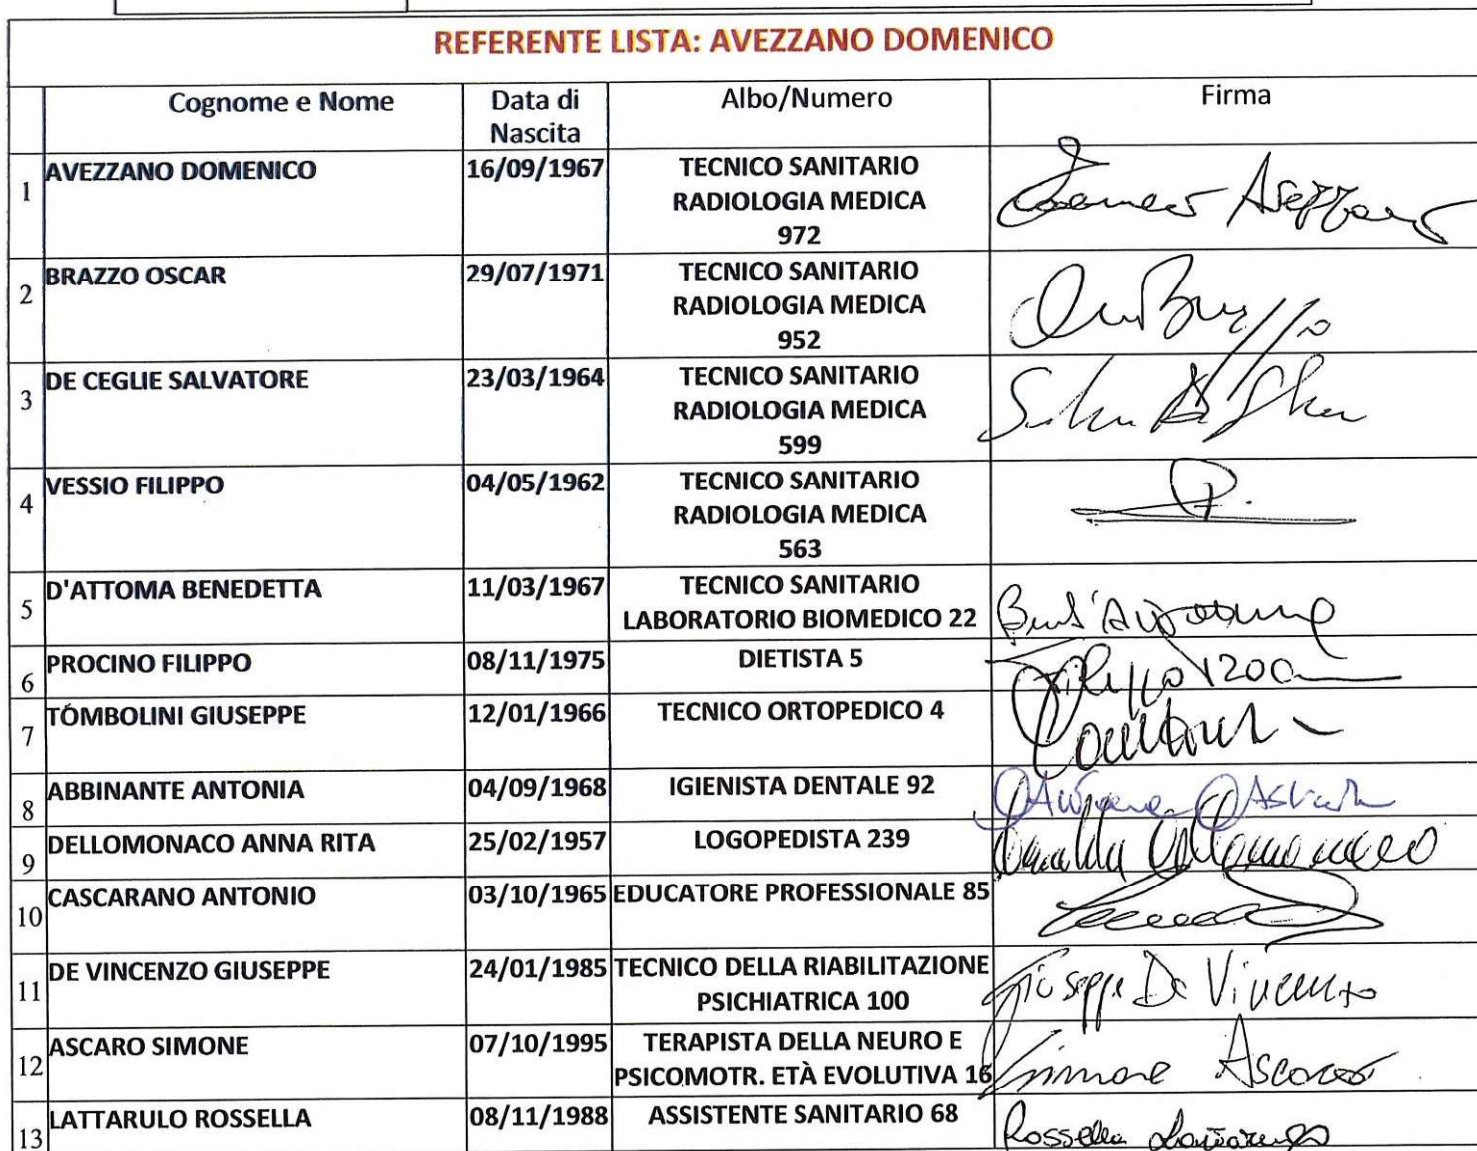 REFERENTE LISTA: AVEZZANO DOMENICO
Cognome e Nome Data di Nascita Albo/Numero Firma
1 AVEZZANO DOMENICO 16/09/1967 TECNICO SANITARIO
RADIOLOGIA MEDICA
972
2 BRAZZO OSCAR 29/07/1971 TECNICO SANITARIO
RADIOLOGIA MEDICA
952
3 DE CEGLIE SALVATORE 23/03/1964 TECNICO SANITARIO
RADIOLOGIA MEDICA
599
4 VESSIO FILIPPO 04/05/1962 TECNICO SANITARIO
RADIOLOGIA MEDICA
563
5 D'ATTOMA BENEDETTA 11/03/1967 TECNICO SANITARIO
LABORATORIO BIOMEDICO 22
6 PROCINO FILIPPO 08/11/1975 DIETISTA 5
7 TOMBOLINI GIUSEPPE 12/01/1966 TECNICO ORTOPEDICO 4
8 ABBINANTE ANTONIA 04/09/1968 IGIENISTA DENTALE 92
9 DELLOMONACO ANNA RITA 25/02/1957 LOGOPEDISTA 239
10 CASCARANO ANTONIO 03/10/1965 EDUCATORE PROFESSIONALE 85
11 DE VINCENZO GIUSEPPE 24/01/1985 TECNICO DELLA RIABILITAZIONE Giuseppe De Vincenzo
PSICHIATRICA 100
12 ASCARO SIMONE 07/10/1995 TERAPISTA DELLA NEURO E Simone Ascaro
PSICOMOTR. ETÀ EVOLUTIVA 16
13 LATTARULO ROSSELLA 08/11/1988 ASSISTENTE SANITARIO 68 Rossella Lattarulo